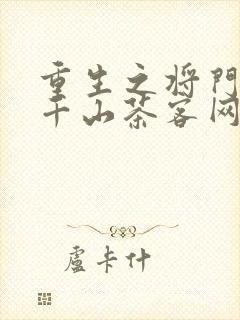 重生之将門
千山茶客网
盧卡什